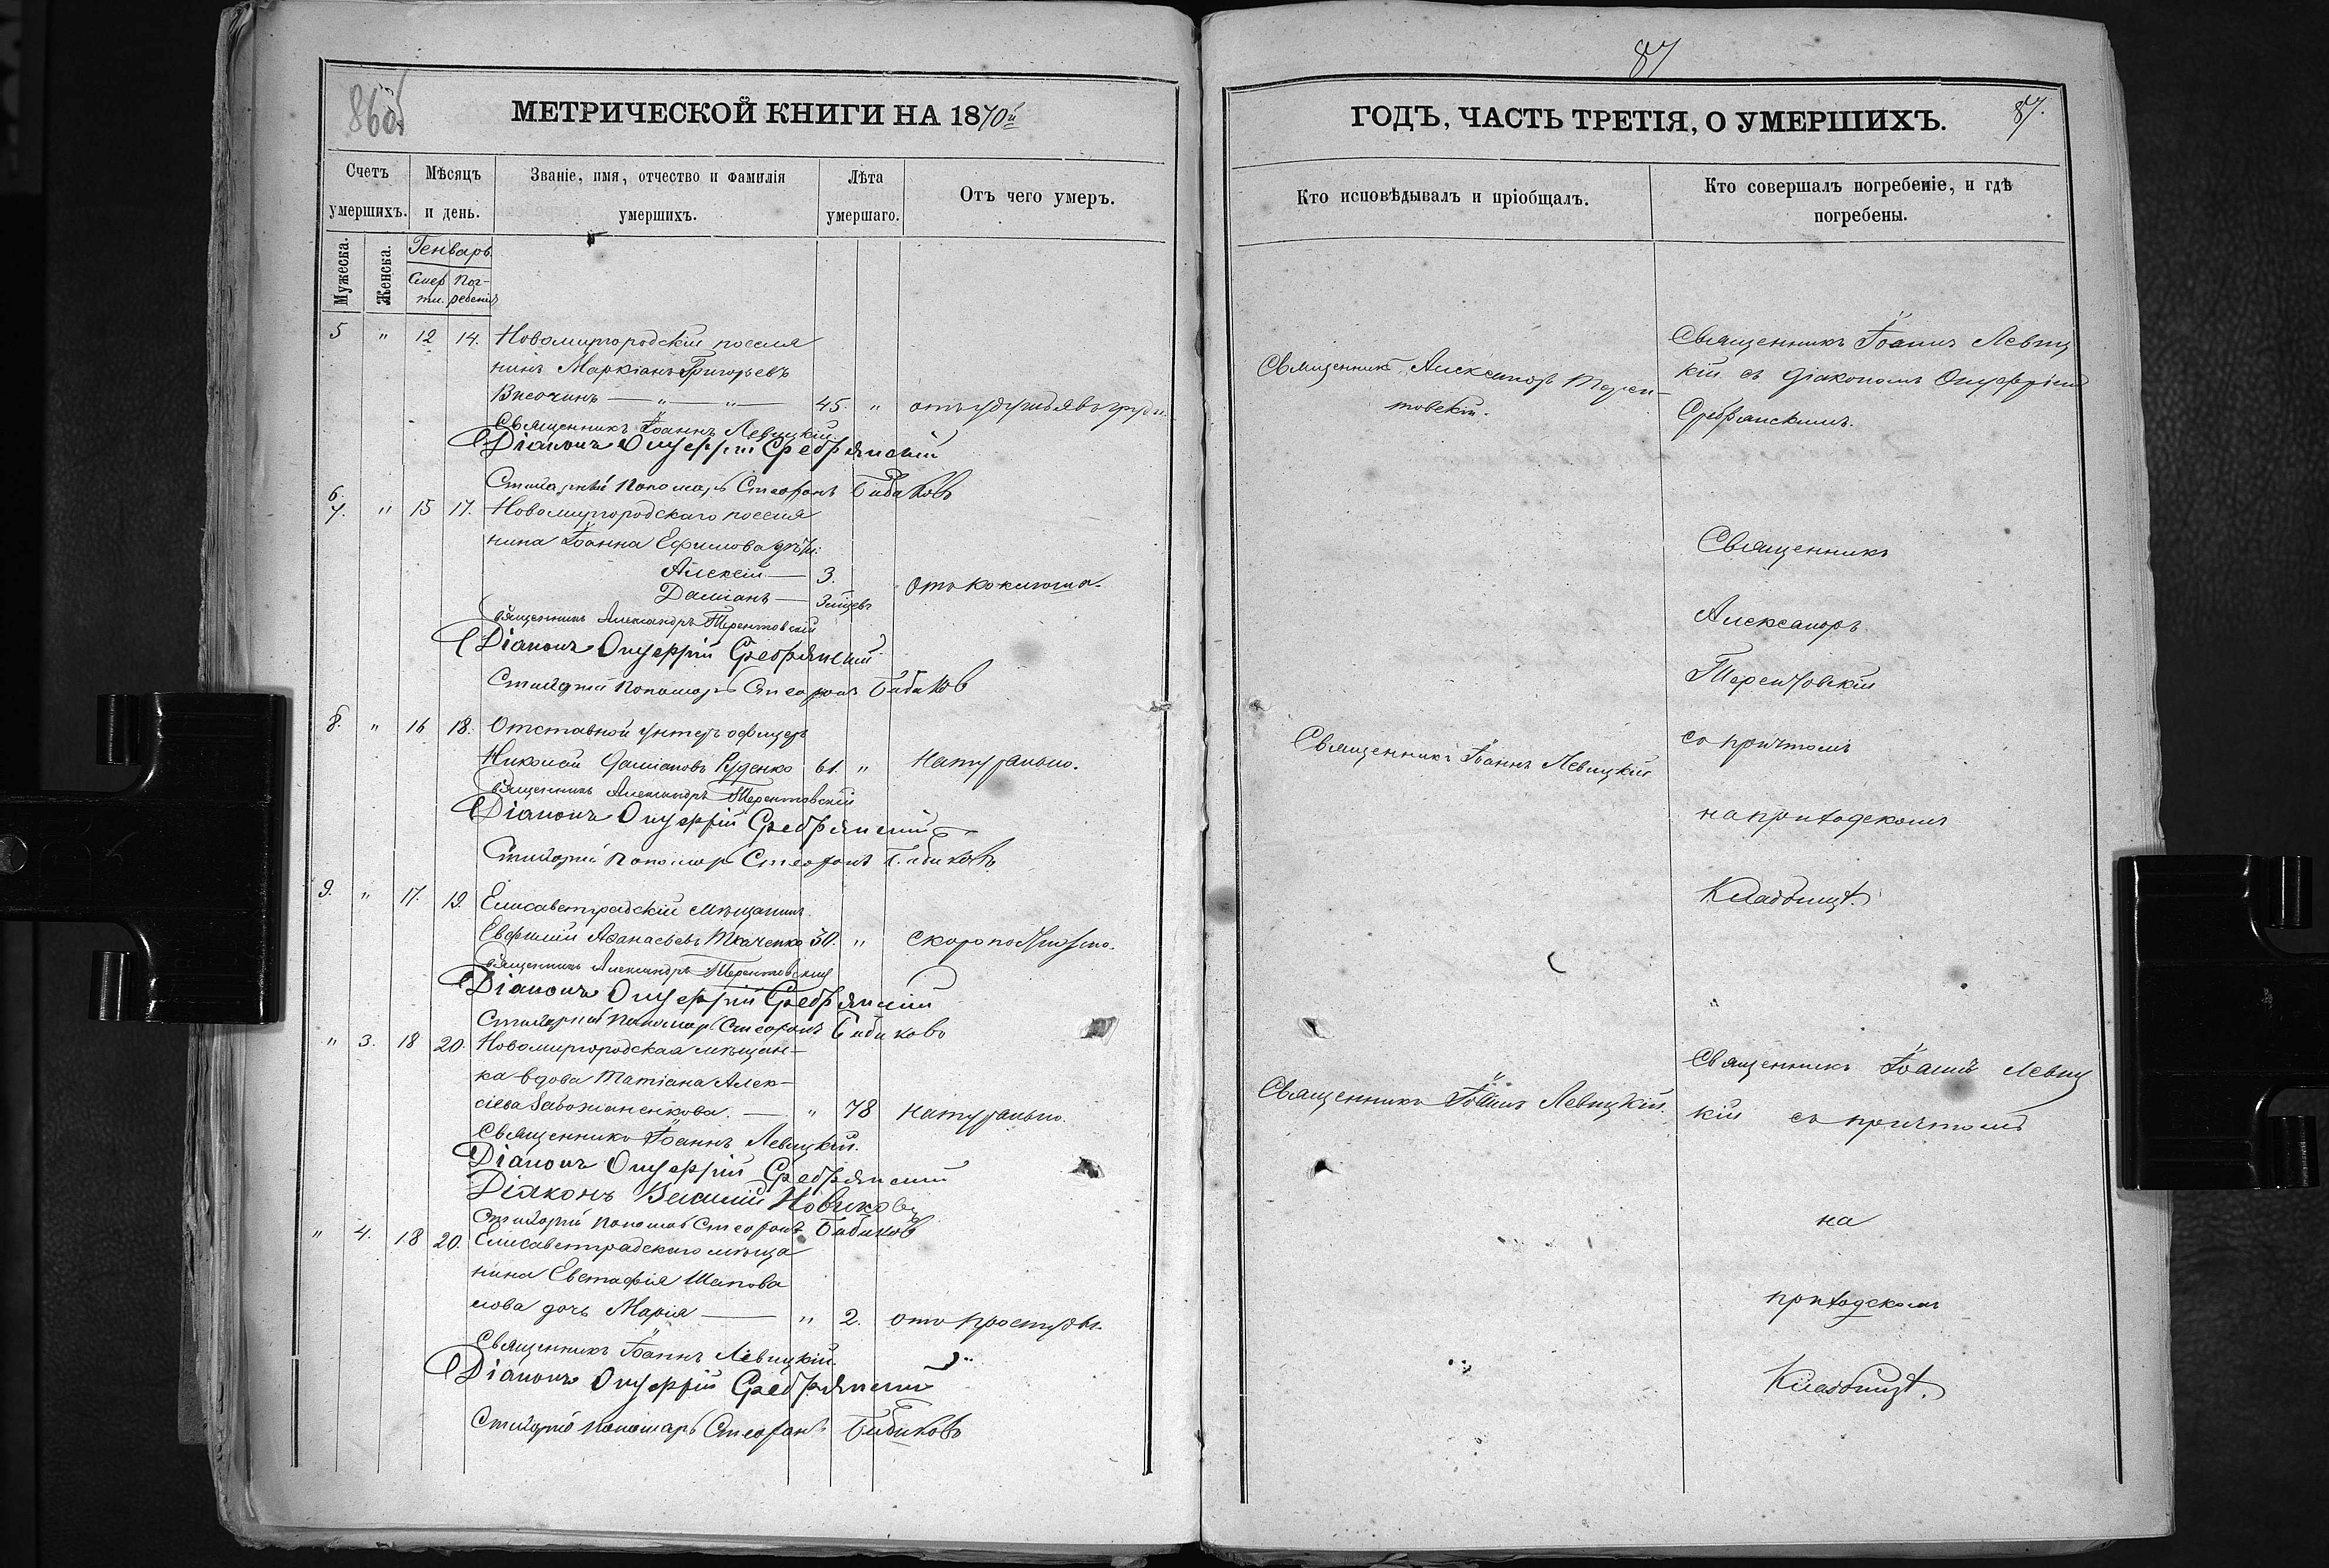 86об
МЕТРИЧЕСКОЙ КНИГИ НА 1870й
Счетъ умершихъ.
Мѣсяцъ и день.
Званіе, имя, отчество и фамилія умершихъ.
Лѣта умершаго.
Отъ чего умеръ.
Мужеска.
Женска.
Генварь.
Смер
ти.
Пог-
ребенія
5 " 12 14. Новомиргородскій поселя
нинъ Маркіанъ Григорьевъ
Височинъ — " — " — 45. " отъ удушья въ груди.
Священникъ Іоаннъ Левицкій.
Діаконъ Онуфрій Сребрянскій
Стихарный Пономарь Стефанъ Бабиковъ
6.
7. " 15 17. Новомиргородскаго поселя
нина Іоанна Ефимова дѣти:
Алексій — 3.
Даміанъ — 3 мѣсяц. Отъ коклюша.
Священникъ Александръ Терентовскій
Діаконъ Онуфрій Сребрянскій
Стихарный Пономарь Стефанъ Бабиковъ
8. " 16 18. Отставной унтеръ офицеръ
Николай Даміановъ Руденко 61. " Натурально.
Священникъ Александръ Терентовскій
Діаконъ Онуфрій Сребрянскій
Стихарный Пономарь Стефанъ Бабиковъ
9. " 17. 19. Елисаветградскій мѣщанинъ
Евфимій Аѳанасьевъ Ткаченко 50. " скоропостижно.
Священникъ Александръ Терентовскій
Діаконъ Онуфрій Сребрянскій
Стихарный Пономарь Стефанъ Бабиковъ
" 3. 18 20. Новомиргородская мѣщан-
ка вдова Татіана Алек-
сіева — " 78 натурально.
Священникъ Іоаннъ Левицкій.
Діаконъ Онуфрій Сребрянскій
Діяконъ Василій Новиковъ
Стихарный Пономарь Стефанъ Бабиковъ
" 4. 18 20. Елисаветградскаго мѣща
нина Евстафія Шапова
лова дочь Марія — " 2. отъ простуды.
Священникъ Іоаннъ Левицкій.
Діаконъ Онуфрій Сребрянскій
Стихарный Пономарь Стефанъ Бабиковъ
87
ГОДЪ, ЧАСТЬ ТРЕТІЯ, О УМЕРШИХЪ.
87.
Кто исповѣдывалъ и пріобщалъ.
Кто совершалъ погребеніе, и гдѣ погребены.
Священникъ Александръ Терен-
товскій.
Священникъ Іоаннъ Левиц
кій съ діакономъ Онуфріемъ
Сребрянскимъ.
Священникъ
Александръ
Терентовскій
Священникъ Іоаннъ Левицкій
съ причтомъ
на приходскомъ
Кладбищѣ.
Священникъ Іоаннъ Левицкій.
Священникъ Іоаннъ Левиц
кій съ причтомъ
на
приходскомъ
Кладбищѣ.